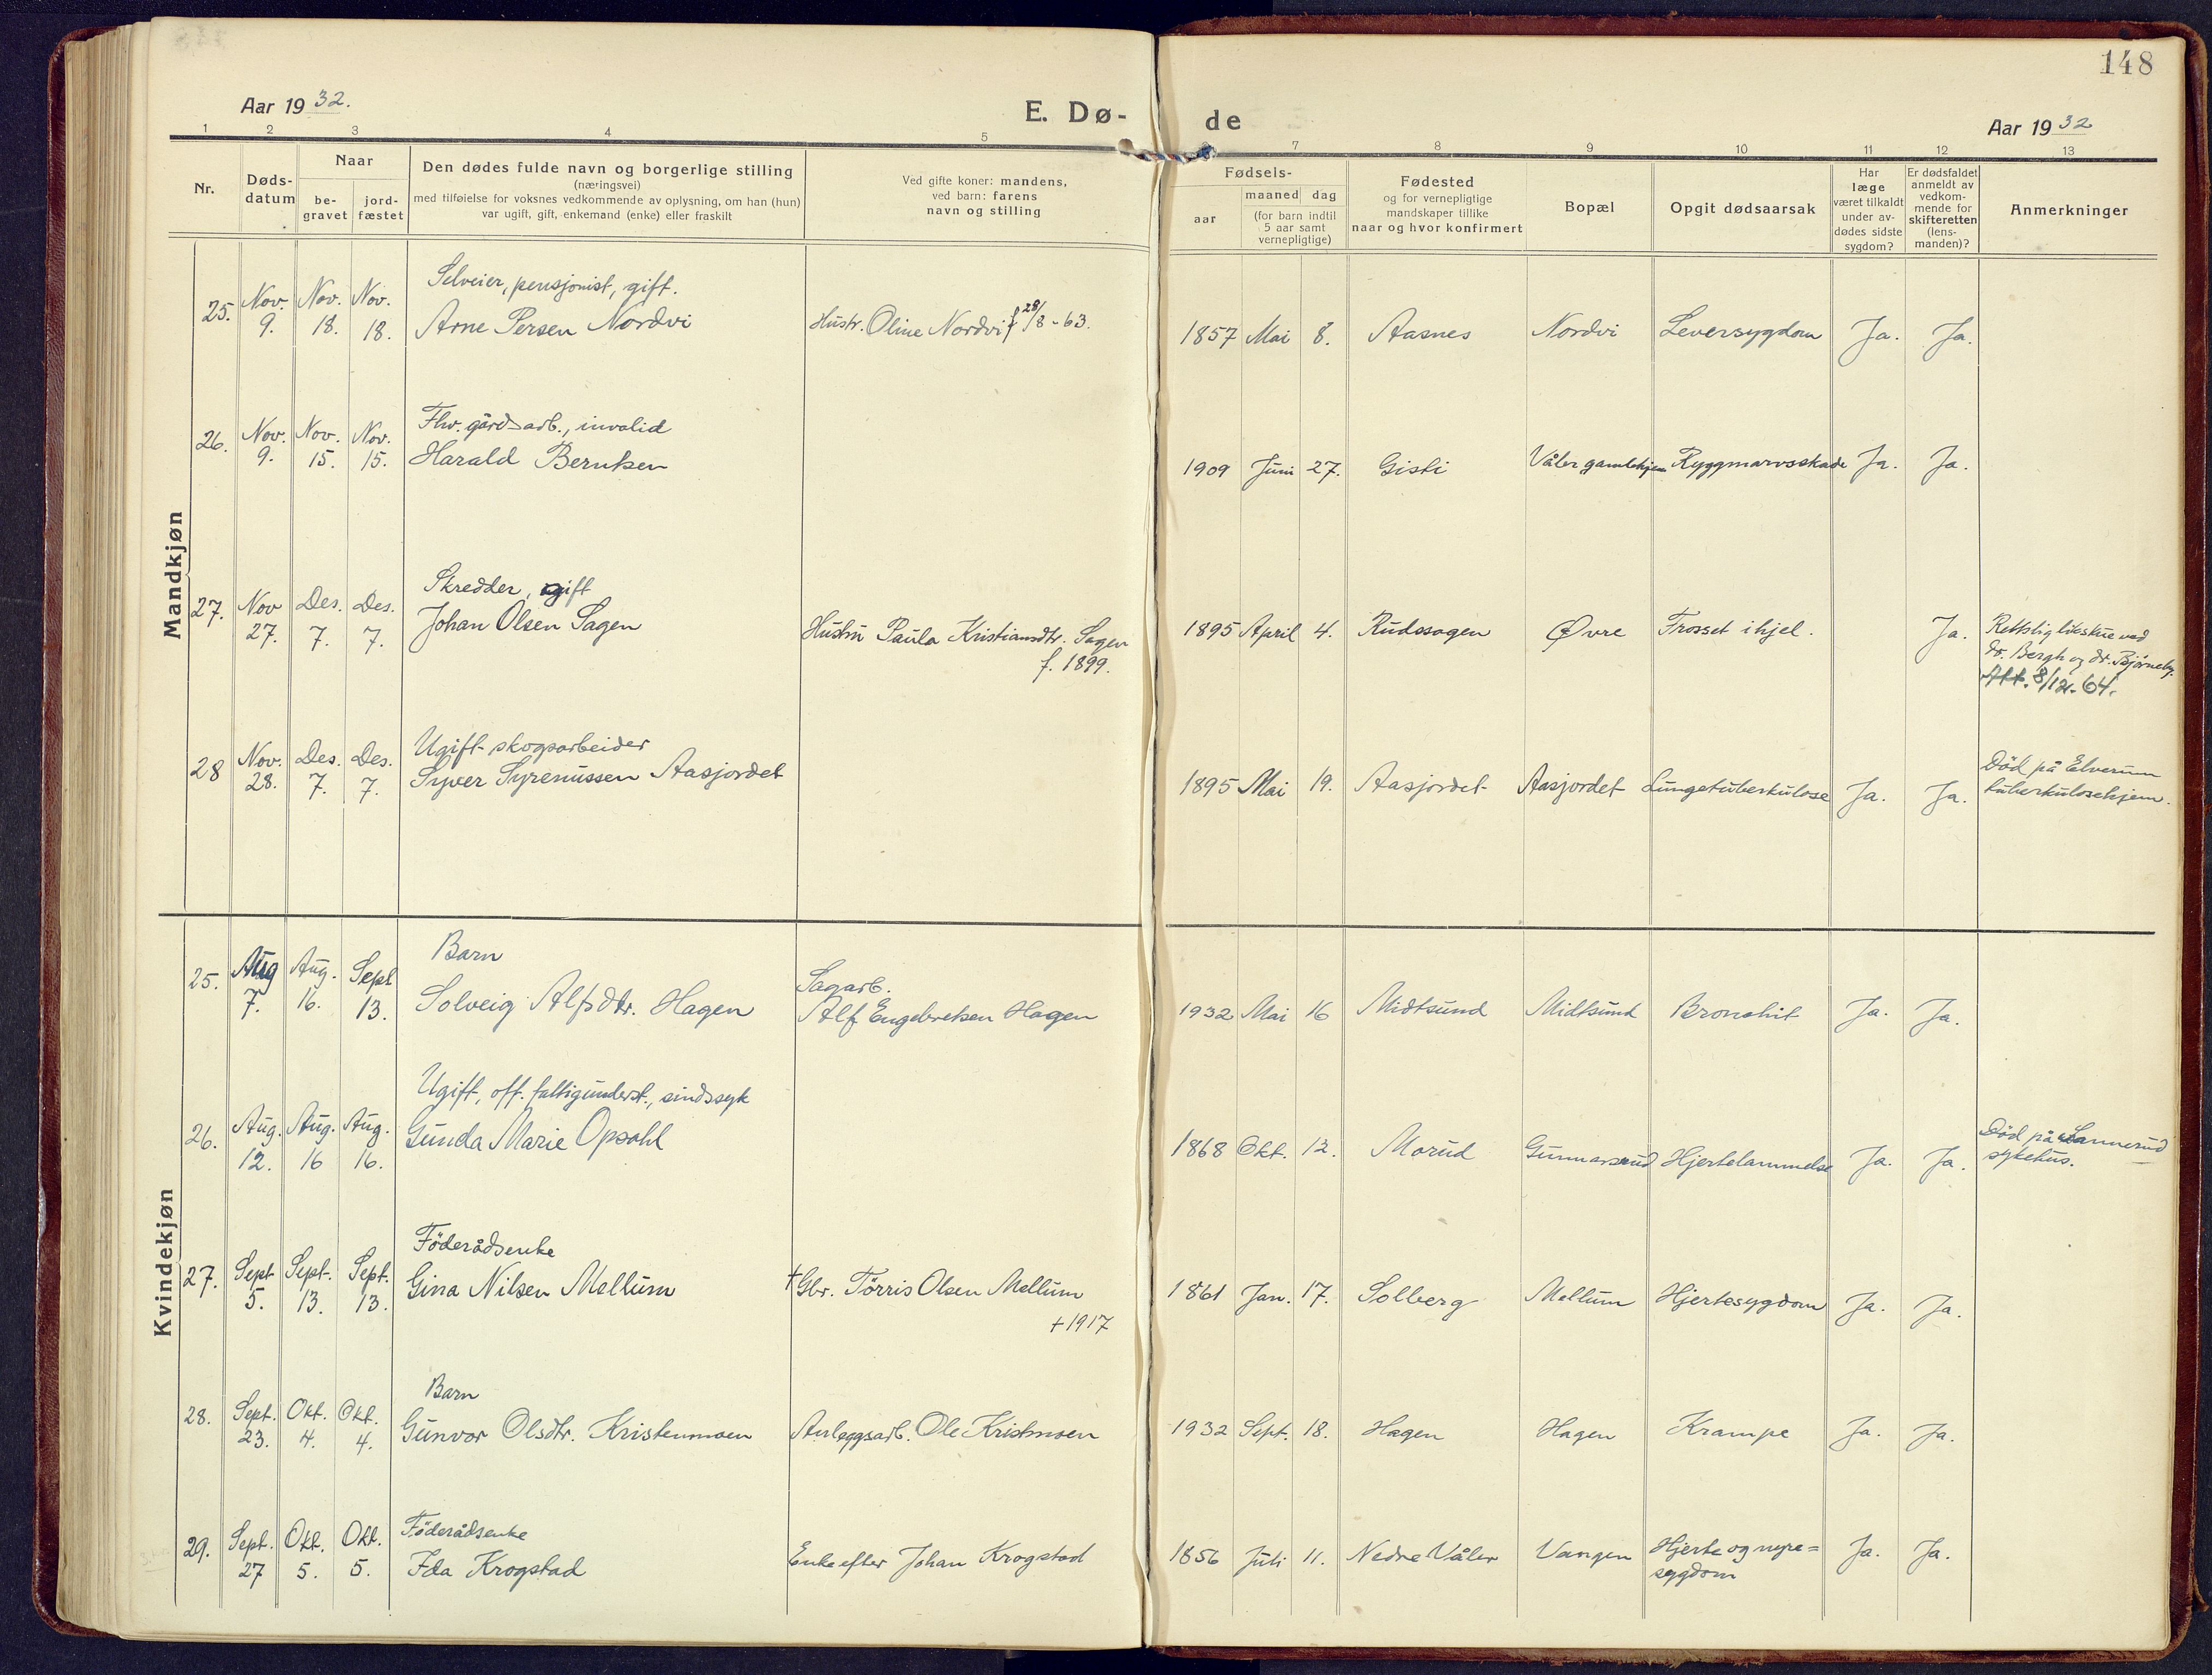 148
Aar 1932.
E. Dø-
de
Aar 1932
1 2 3 4 5 7 8 9 10 11 12 13
Nr.
Døds-
datum
Naar
be-
gravet
jord-
fæstet
Den dødes fulde navn og borgerlige stilling
(næringsvei)
med tilføielse for voksnes vedkommende av oplysning, om han (hun)
var ugift, gift, enkemand (enke) eller fraskilt
Ved gifte koner: mandens,
ved barn: farens
navn og stilling
Fødsels-
aar
maaned dag
(for barn indtil
5 aar samt
vernepligtige)
Fødested
og for vernepligtige
mandskaper tillike
naar og hvor konfirmert
Bopæl
Opgit dødsaarsak
Har
læge
været tilkaldt
under av-
dødes sidste
sygdom?
Er dødsfaldet
anmeldt av
vedkom-
mende for
skifteretten
(lens-
manden)?
Anmerkninger
Mandkjøn
Selveier, pensjonist, gift.
25. Nov. 9. Nov. 18. Nov. 18. Arne Persen Nordvi Hustr. Oline Nordvi f 28/8-63. 1857 Mai 8. Aasnes Nordvi Leversygdom Ja. Ja.
Fhv. gårdsarb., invalid
26. Nov. 9. Nov. 15. Nov. 15. Harald Berntsen 1909 Juni 27. Gisti Våler gamlehjem Ryggmarvsskade Ja. Ja.
Skredder, gift
27. Nov 27. Des. 7. Des. 7. Johan Olsen Sagen Hustru Paula Kristiansdtr. Sagen
f. 1899.
1895 April 4. Rudssagen Øvre Frosset ihjel. Ja. Rettslig likskue ved
dr. Bergh og dr. Bjørneby.
Att. 8/12-64.
Ugift skogsarbeider
28 Nov. 28. Des. 7. Des. 7. Syver Syrenussen Aasjordet 1895 Mai 19. Aasjordet Aasjordet Lungetuberkulose Ja. Ja. Död på Elverum
tuberkulosehjem.
Kvindekjøn
Barn
25. Aug 7. Aug. 16. Sept 13. Solveig Alfsdtr. Hagen Sagarb.
Alf Engebretsen Hagen 1932 Mai 16 Midtsund Midtsund Bronchit Ja. Ja.
Ugift, off. fattigunderst., sindssyk
26. Aug. 12. Aug. 16 Aug. 16. Gunda Marie Opsahl 1868 Okt. 12. Morud Gunnarsrud Hjertelammelse Ja. Ja. Död på Sannerud
sykehus.
Föderådsenke
27. Sept 5. Sept. 13. Sept. 13. Gina Nilsen Mellum † Gbr. Törris Olsen Mellum
+ 1917
1861 Jan. 17. Solberg Mellum Hjertesygdom Ja. Ja.
Barn
28. Sept. 23. Okt. 4. Okt. 4. Gunvor Olsdtr. Kristenmoen Anleggsarb. Ole Kristmoen 1932 Sept. 18. Hagen Hagen Krampe Ja. Ja.
Föderådsenke
29. Sept. 27 Okt. 5. Okt. 5. Ida Krogstad Enke efter Johan Krogstad 1856 Juli 11. Nedre Våler Vangen Hjerte og nyre=
sygdom Ja. Ja.